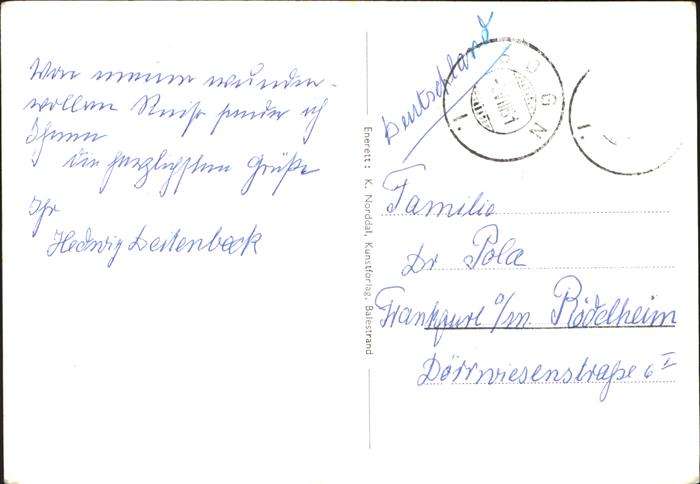 Von meiner wunder-
vollen Reise sende ich
Ihnen
die herzlichsten Grüße
Ihr
Hedwig Deitenbeck
Enerett: K. Norddal, Kunstforlag, Balestrand
Deutschland
Familie
Dr Pola
Frankfurt a/m. Rödelheim
Dörrwiesenstraße 6 I